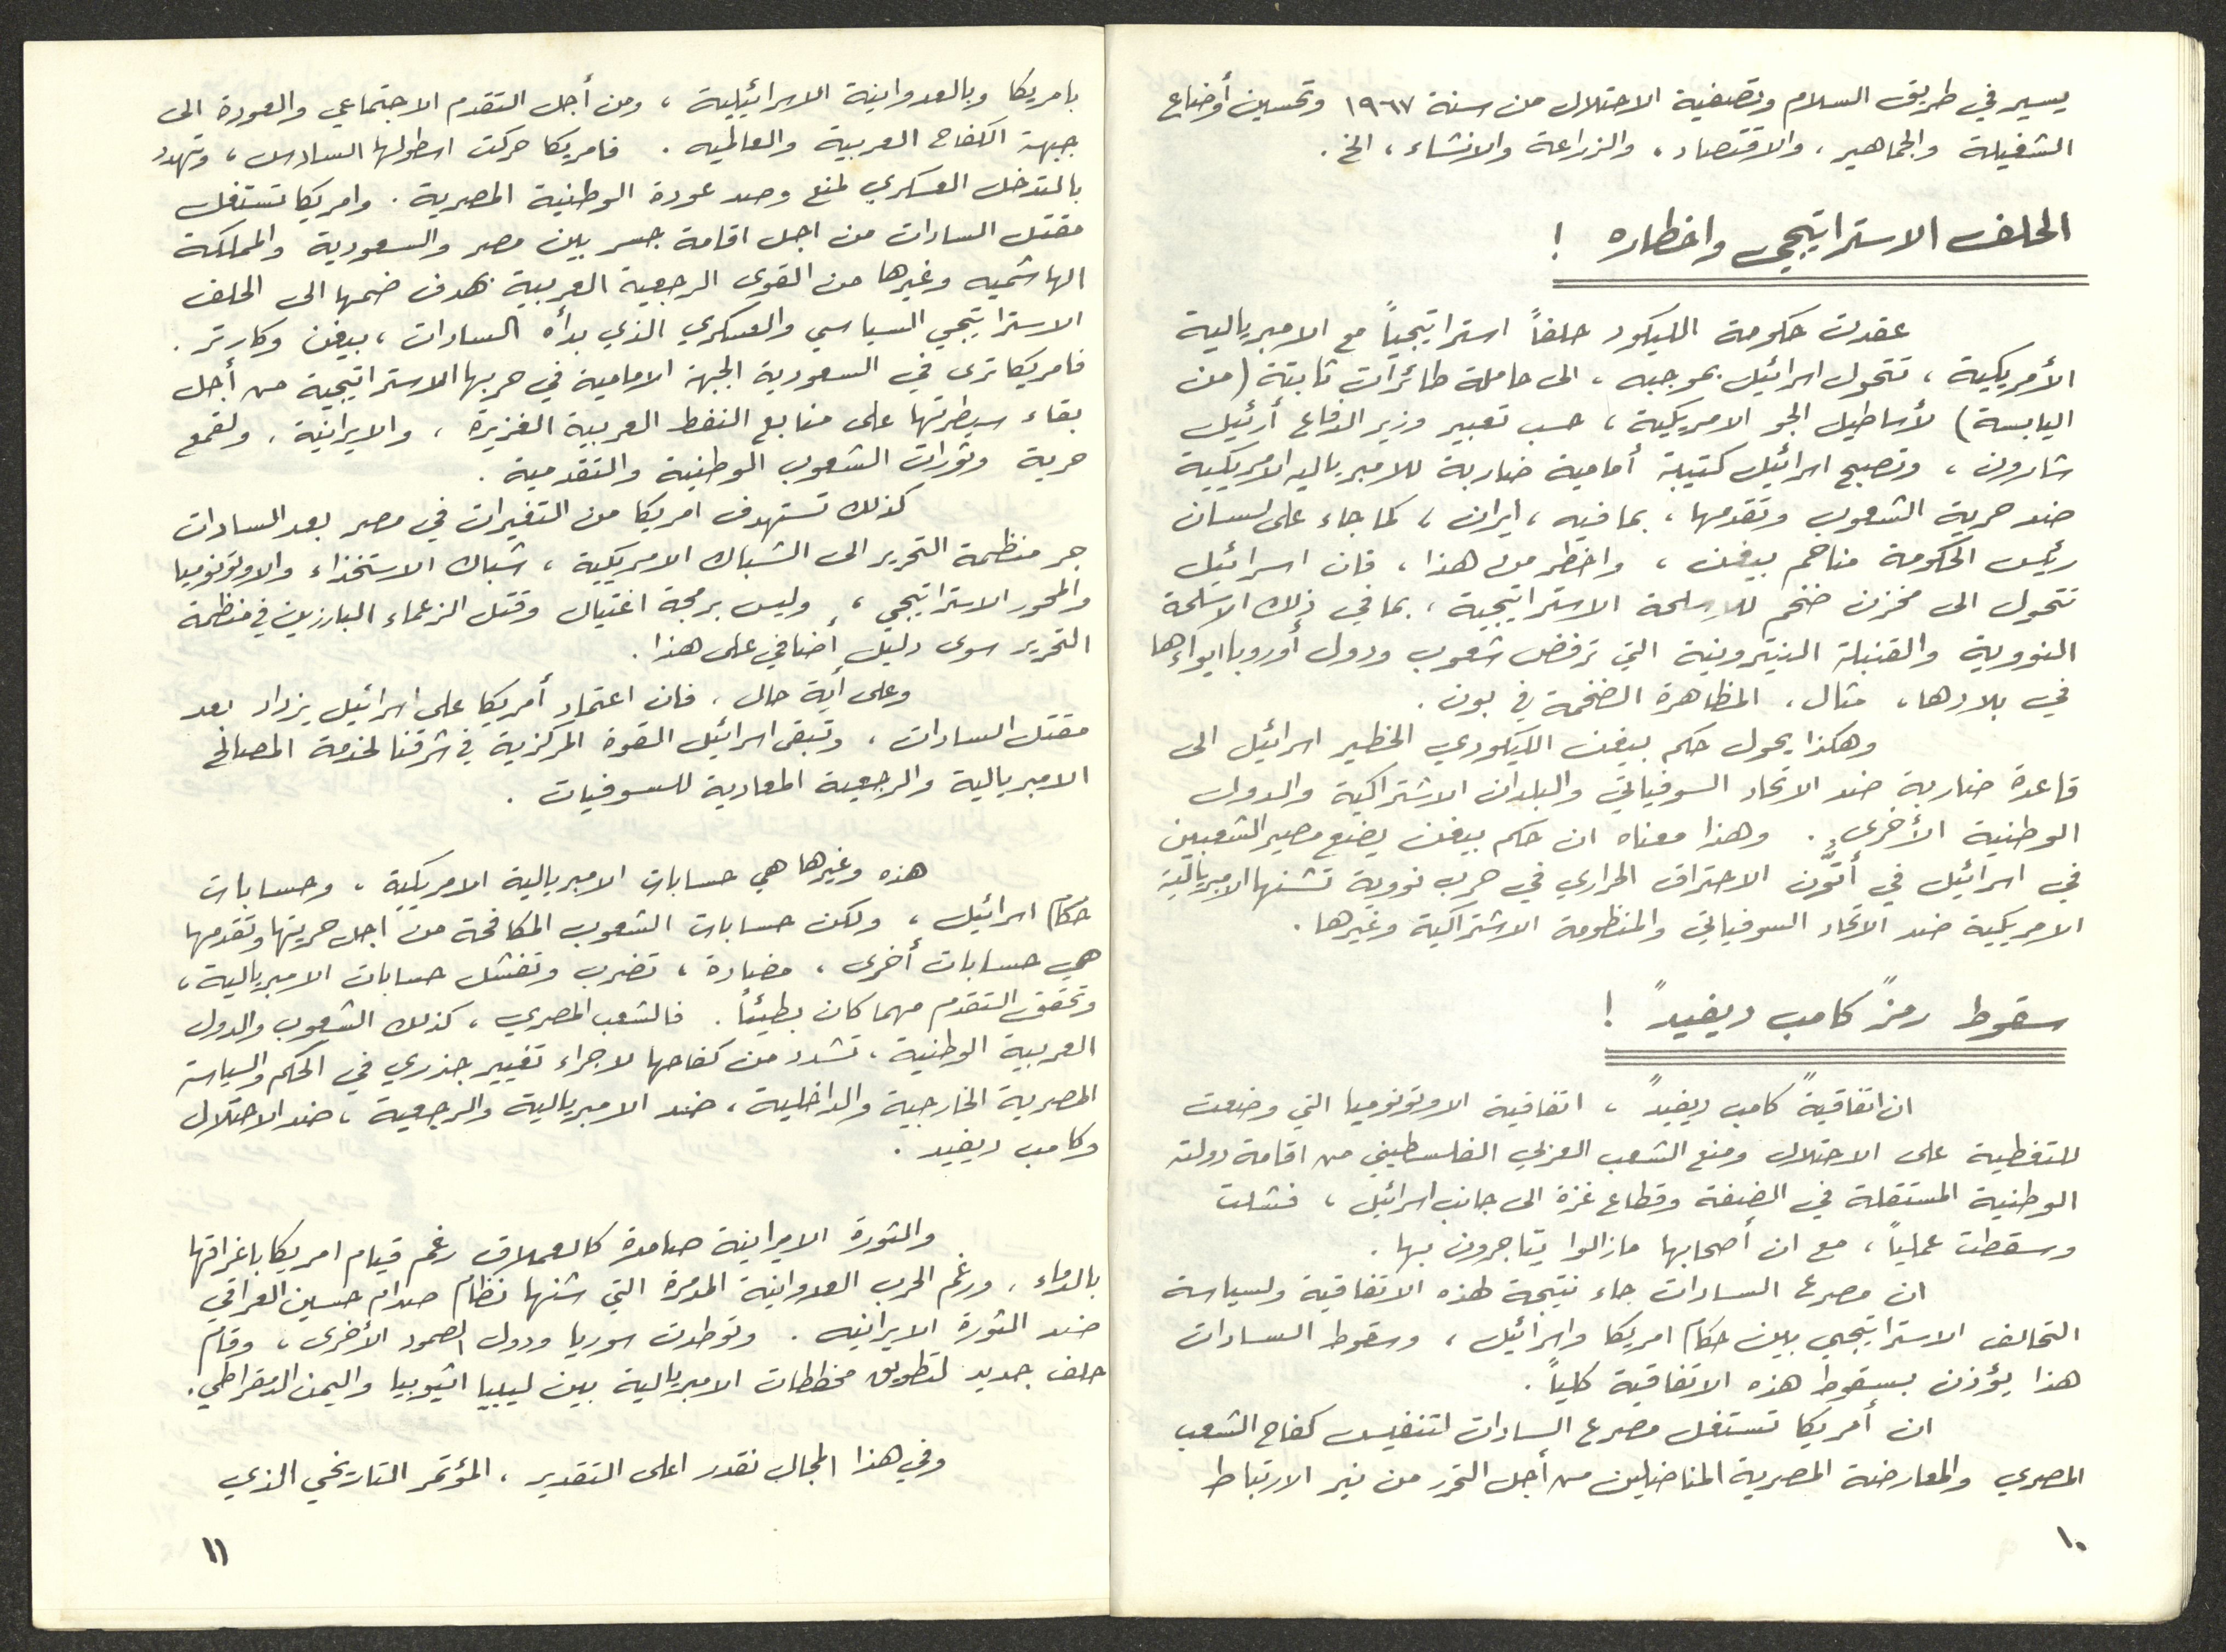 يسير في طريق السلام وتصفية الاحتلال من سنة ١٩٦٧ وتحسين أوضاع
الشغيلة والجماهير، والاقتصاد، والزراعة والانشاء، الخ.
الحلف الاستراتيجي واخطاره !
عقدت حكومة الليكود حلفاً استراتيجياً مع الامبريالية
الأمريكية، تتحول اسرائيل بموجبه، الى حاملة طائرات ثابتة (من
اليابسة) لأساطيل الجو الامريكية، حسب تعبير وزير الدفاع أرئيل
شارون، وتصبح اسرائيل كتيبة أمامية ضاربة للامبرياليه الامريكية
ضد حرية الشعوب وتقدمها، بما فيه، ايران، كما جاء على لسان
رئيس الحكومة مناحم بيغن، واخطر من هذا، فان اسرائيل
تتحول الى مخزن ضخم للاسلحة الاستراتيجية، بما في ذلك الاسلحة
النووية والقنبلة النيترونية التي ترفض شعوب ودول أوروبا ايواءها
في بلادها، مثال، المظاهرة الضخمة في بون.
وهكذا يحول حكم بيغن الليكودي الخطير اسرائيل الى
قاعدة ضاربة ضد الاتحاد السوفياتي والبلدان الاشتراكية والدول
الوطنية الأخرى. وهذا معناه ان حكم بيغن يضع مصير الشعبين
في اسرائيل في أتّون الاحتراق الحراري في حرب نووية تشنها الامبريالية
الامريكية ضد الاتحاد السوفياتي والمنظومة الاشتراكية وغيرها.
سقوط رمز "كامب ديفيد" !
ان اتفاقية "كامب ديفيد"، اتفاقية الاوتونوميا التي وضعت
للتغطية على الاحتلال ومنع الشعب العربي الفلسطيني من اقامة دولته
الوطنية المستقلة في الضفة وقطاع غزة الى جانب اسرائيل، فشلت
وسقطت عملياً، مع ان أصحابها مازالوا يتاجرون بها.
ان مصرع السادات جاء نتيجة لهذه الاتفاقية ولسياسة
التحالف الاستراتيجي بين حكام امريكا واسرائيل، وسقوط السادات
هذا يؤذن بسقوط هذه الاتفاقية كلياً.
ان أمريكا تستغل مصرع السادات لتنفيس كفاح الشعب
المصري والمعارضة المصرية المناضلين من أجل التحرر من نير الارتباط
١٠
بامريكا وبالعدوانية الاسرائيلية، ومن أجل التقدم الاجتماعي والعودة الى
جبهة الكفاح العربية والعالميه. فامريكا حركت اسطولها السادس، وتهدد
بالتدخل العسكري لمنع وصد عودة الوطنية المصرية. وامريكا تستغل
مقتل السادات من اجل اقامة جسر بين مصر والسعودية والمملكة
الهاشميه وغيرها من القوى الرجعية العربية بهدف ضمها الى الحلف
الاستراتيجي السياسي والعسكري الذي بدأه السادات، بيغن وكارتر.
فامريكا ترى في السعودية الجبهة الامامية في حربها الاستراتيجية من أجل
بقاء سيطرتها على منابع النفط العربية الغزيرة، والايرانية، ولقمع
حرية وثورات الشعوب الوطنية والتقدمية.
كذلك تستهدف امريكا من التغيرات في مصر بعد السادات
جر منظمة التحرير الى الشباك الامريكية، شباك الاستخذاء والاوتونوميا
والمحور الاستراتيجي، وليس برمجة اغتيال وقتل الزعماء البارزين في منظمة
التحرير سوى دليل أضافي على هذا.
وعلى أية حال، فان اعتماد أمريكا على اسرائيل يزداد بعد
مقتل السادات، وتبقى اسرائيل القوة المركزية في شرقنا لخدمة المصالح
الامبريالية والرجعية المعادية للسوفيات.
هذه وغيرها هي حسابات الامبريالية الامريكية، وحسابات
حكام اسرائيل، ولكن حسابات الشعوب المكافحة من اجل حريتها وتقدمها
هي حسابات أخرى، مضادة، تضرب وتفشل حسابات الامبريالية،
وتحقق التقدم مهما كان بطيئاً. فالشعب المصري، كذلك الشعوب والدول
العربية الوطنية، تشدد من كفاحها لاجراء تغيير جذري في الحكم والسياسة
المصرية الخارجية والداخلية، ضد الامبريالية والرجعية، ضد الاحتلال
وكامب ديفيد.
والثورة الايرانية صامدة كالعملاق رغم قيام امريكا باغراقها
بالدماء، ورغم الحرب العدوانية المدمرة التي شنها نظام صدام حسين العراقي
ضد الثورة الايرانيه. وتوطدت سوريا ودول الصمود الأخرى، وقام
حلف جديد لتطويق مخططات الامبريالية بين ليبيا اثيوبيا واليمن الدمقراطي.
وفي هذا المجال نقدر اعلى التقدير، المؤتمر التاريخي الذي
١١